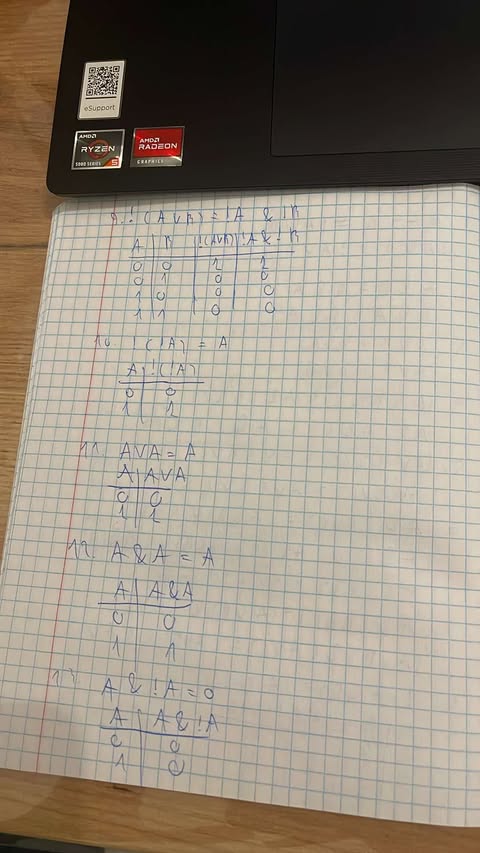 eSupport
AMD
RYZEN
5000 SERIES 5
AMD
RADEON
GRAPHICS
9. !(A∨B) = !A & !B
A | B | !(A∨B) | !A & !B
0 | 0 | 1 | 1
0 | 1 | 0 | 0
1 | 0 | 0 | 0
1 | 1 | 0 | 0
10. !(!A) = A
A | !(!A)
0 | 0
1 | 1
11. A∨A = A
A | A∨A
0 | 0
1 | 1
12. A & A = A
A | A&A
0 | 0
1 | 1
13. A & !A = 0
A | A & !A
0 | 0
1 | 0